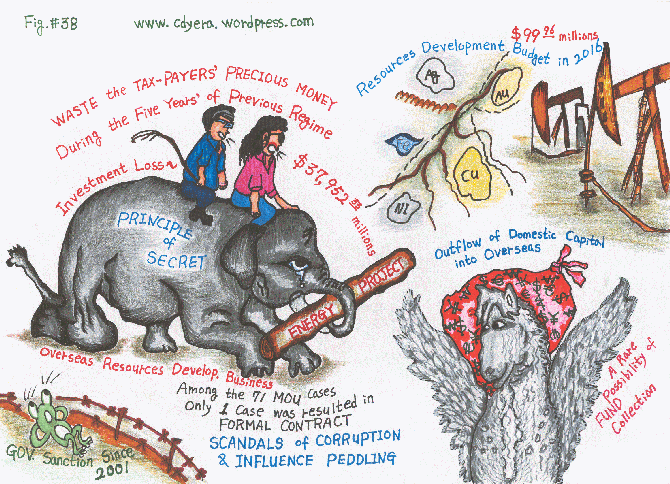 Fig.#38
www.cdyera.wordpress.com
WASTE the TAX-PAYERS' PRECIOUS MONEY
During the Five Years' of Previous Regime
Investment Loss~
$37,952 millions
PRINCIPLE
of
SECRET
ENERGY PROJECT
Overseas Resources Develop. Business
Among the 71 MOU Cases
Only 1 case was resulted in
FORMAL CONTRACT
SCANDALS of CORRUPTION
& INFLUENCE PEDDLING
GOV. Sanction Since
2001
$99 96 millions
Resources Development Budget in 2016
Ag
AU
CU
Ni
Outflow of Domestic Capital
into Overseas
A Rare
Possibility of
FUND
Collection